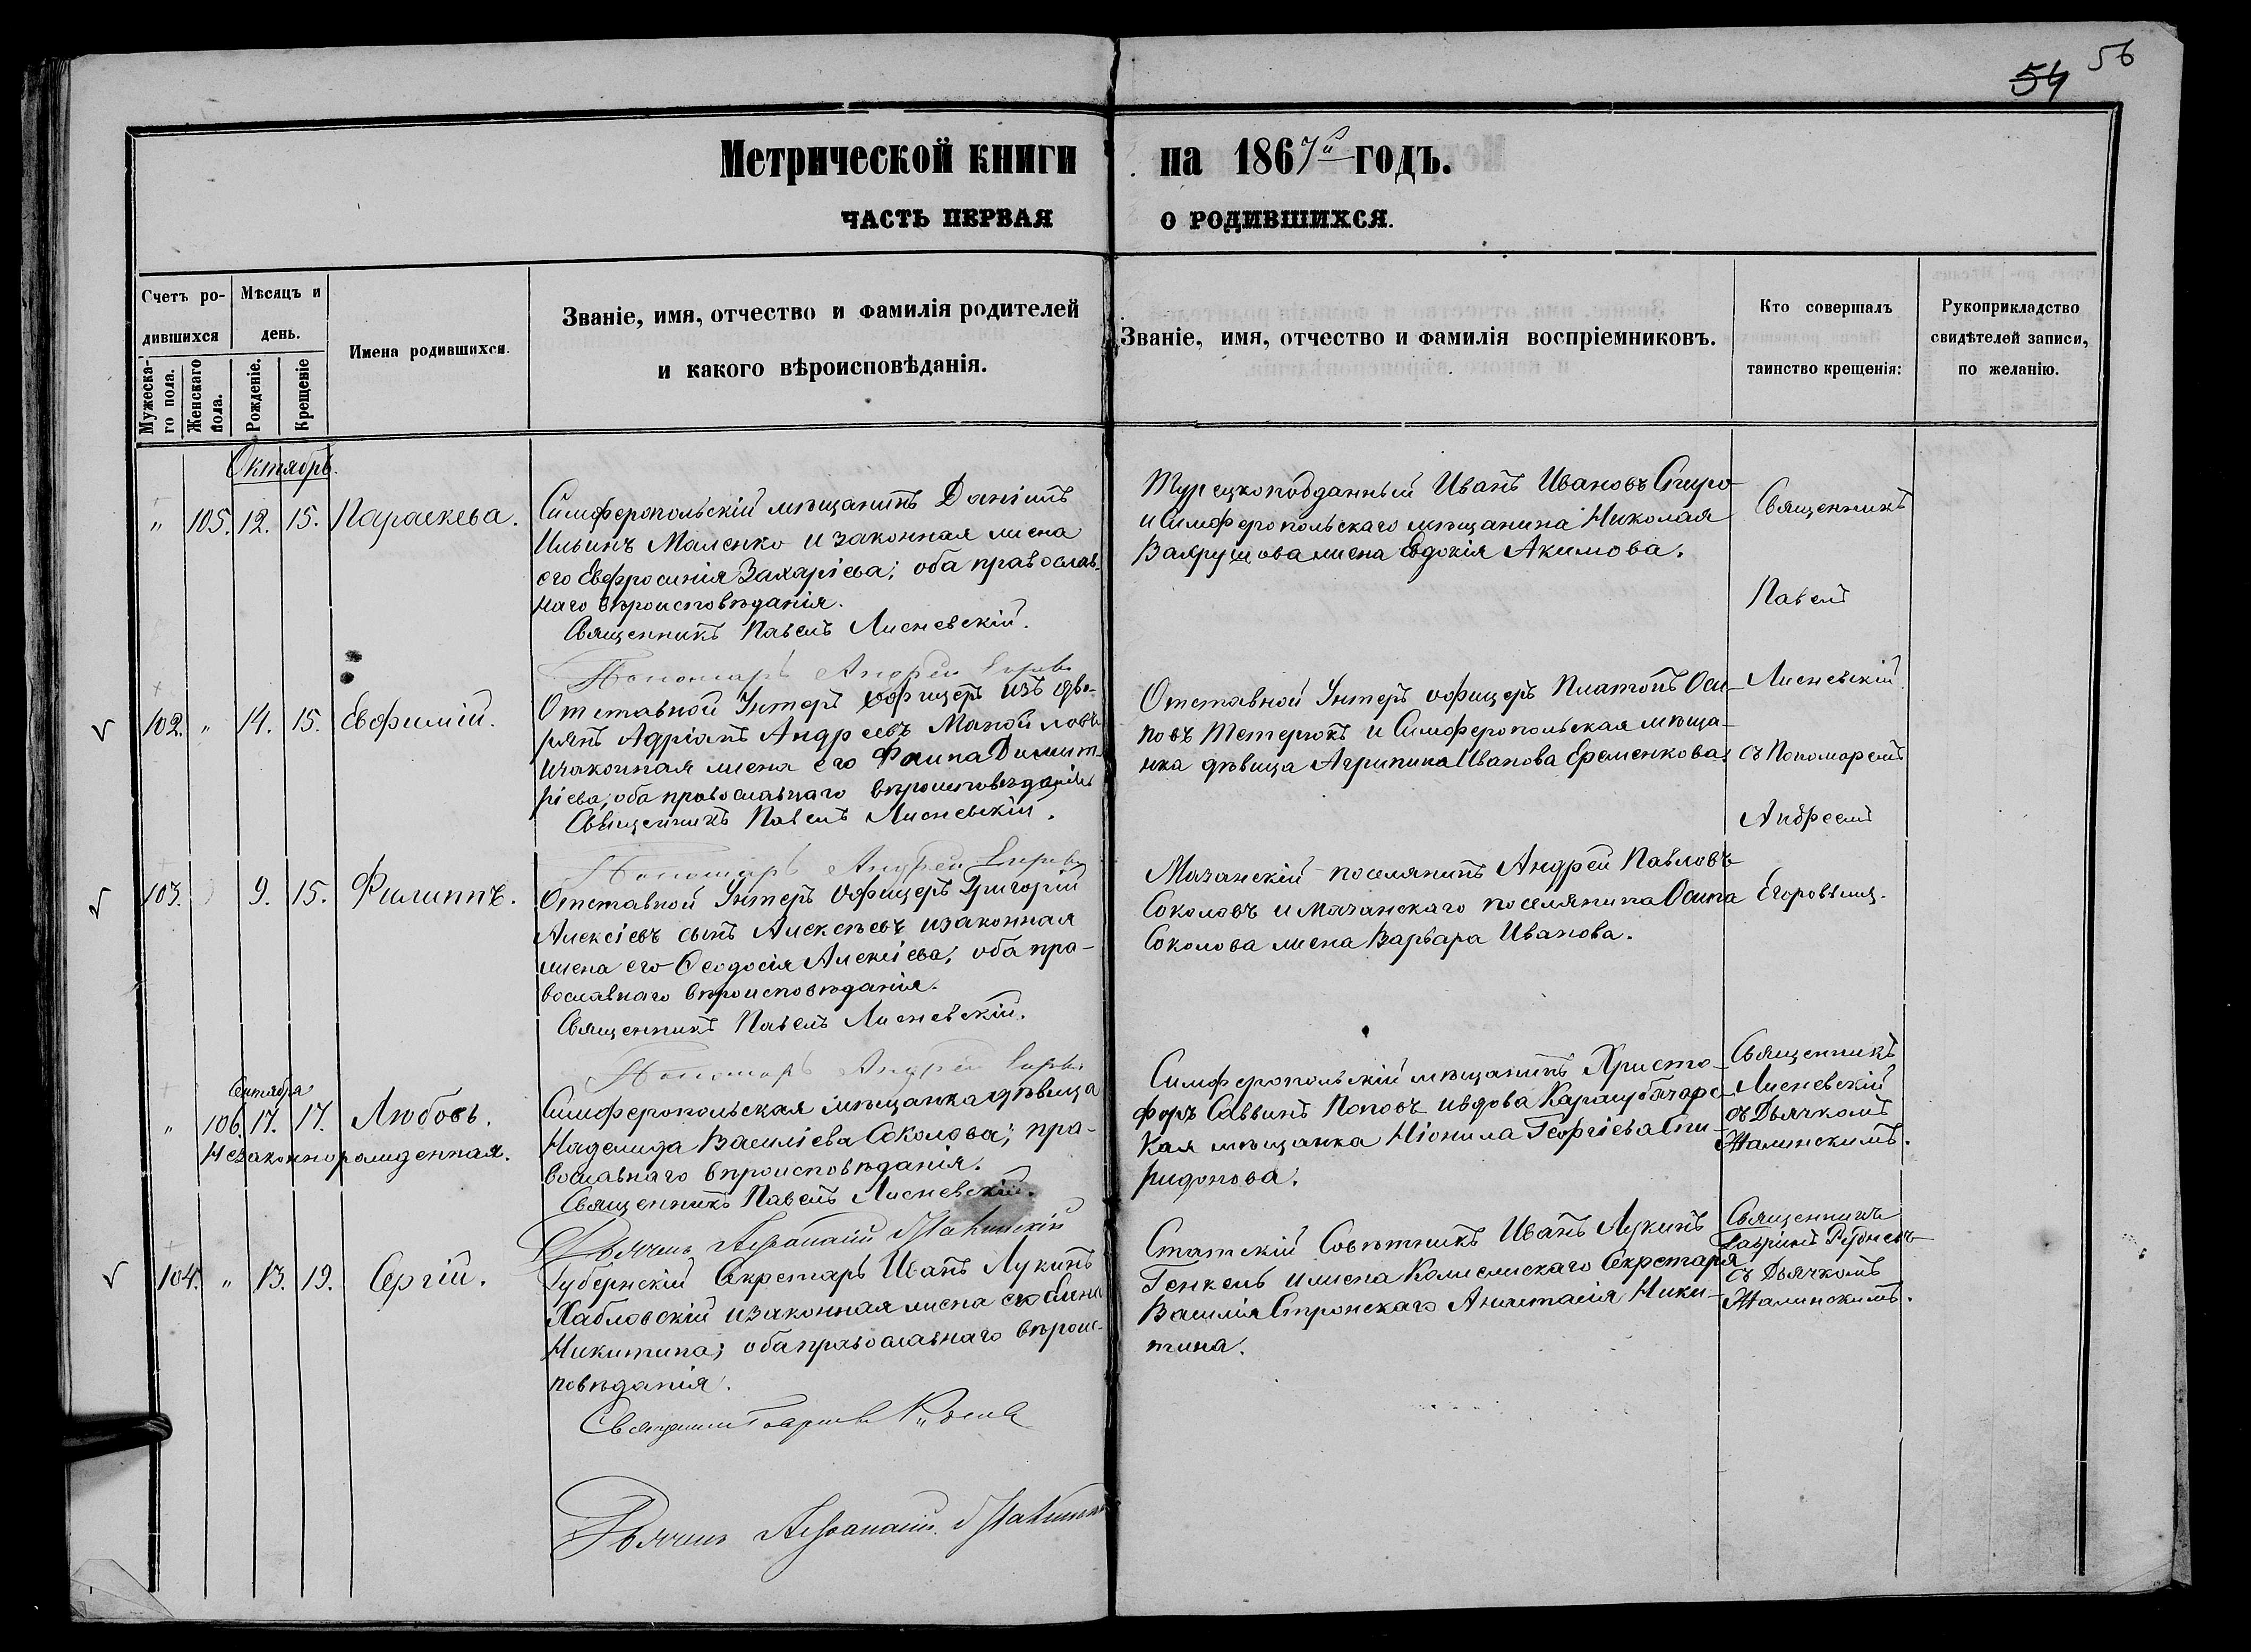 56
54
Метрической книги на 1867й годъ.
ЧАСТЬ ПЕРВАЯ О РОДИВШИХСЯ.
Счетъ ро-
дившихся
Мужеска-
го пола.
Женскаго
пола.
Мѣсяцъ и
день.
Рожденіе.
Крещеніе
Имена родившихся.
Званіе, имя, отчество и фамилія родителей
и какого вѣроисповѣданія.
Званіе, имя, отчество и фамилія воспріемниковъ.
Кто совершалъ
таинство крещенія:
Рукоприкладство
свидѣтелей записи,
по желанію.
Октябрь.
" 105. 12. 15. Параскева.
Симферопольскій мѣщанинъ Даніилъ
Ильинъ Маленко и законная жена
его Евфросинія Захаріева; оба православ-
наго вѣроисповѣданія.
Священникъ Павелъ Лисневскій.
Пономарь Андрей
Турецкоподданный Иванъ Ивановъ Спиро
и Симферопольскаго мѣщанина Николая
Вахрушова жена Евдокія Акимова.
Священникъ
Павелъ
Лисневскій
съ Пономаремъ
Андреемъ
Егоровымъ.
102. " 14. 15. Евфимій.
Отставной Унтеръ офицеръ изъ дво-
рянъ Адріанъ Андреевъ Манойловъ
и законная жена его Фаина Димит-
ріева, оба православнаго вѣроисповѣданія
Священникъ Павелъ Лисневскій.
Пономарь Андрей
Отставной Унтеръ офицеръ Платонъ Оси-
повъ Тетерюкъ и Симферопольская мѣща-
нка дѣвица Агрипина Иванова Еременкова.
103. 9. 15. Филиппъ.
Отставной Унтеръ Офицеръ Григорій
Алексіевъ сынъ Алексѣевъ и законная
жена его Ѳеодосія Алексіева, оба пра-
вославнаго вѣроисповѣданія.
Священникъ Павелъ Лисневскій.
Пономарь Андрей
Мазанскій поселянинъ Андрей Павловъ
Соколовъ и Мазанскаго поселянина Осипа
Соколова жена Варвара Иванова.
Сентября
" 106. 17. 17. Любовь.
Незаконнорожденная.
Симферопольская мѣщанка дѣвица
Надежда Василіева Соколова; пра-
вославнаго вѣроисповѣданія.
Священникъ Павелъ Лисневскій.
Дьячекъ Аѳанасій Жалинскій
Симферопольскій мѣщанинъ Христо-
форъ Саввинъ Поповъ и вдова Карасубазарс-
кая мѣщанкаНіонила Георгіева Спи-
ридонова.
Священникъ
Лисневскій
съ Дьячкомъ
Жалинскимъ.
104. " 13. 19. Сергій.
Губернскій Секретарь Иванъ Лукинъ
Хабловскій и законная жена его Елена
Никитина; оба православнаго вѣроис-
повѣданія.
Дьячекъ Аѳанасій Жалинскій
Статскій Совѣтникъ Иванъ Лукинъ
Генкель и жена Колежскаго Секретаря
Василія Стронскаго Анастасія Ники-
тина.
Священникъ
Гавріилъ Рудневъ
съ Дьячкомъ
Жалинскимъ.